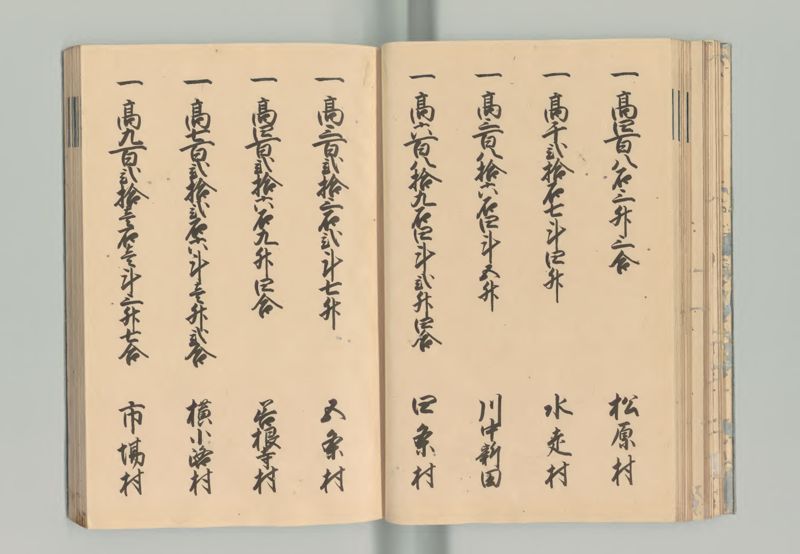 一 高四百八石三升三合 松原村
一 高千弐拾石七斗四升 水走村
一 高三百八拾六石四斗五升 川中新田
一 高六百八拾九石四斗弐升四合 四条村
一 高三百弐拾三石弐斗七升 五条村
一 高四百弐拾六石九升四合 客坊村
一 高七百弐拾弐石六斗壱升弐合 横小路村
一 高九百弐拾壱石壱斗三升七合 市場村